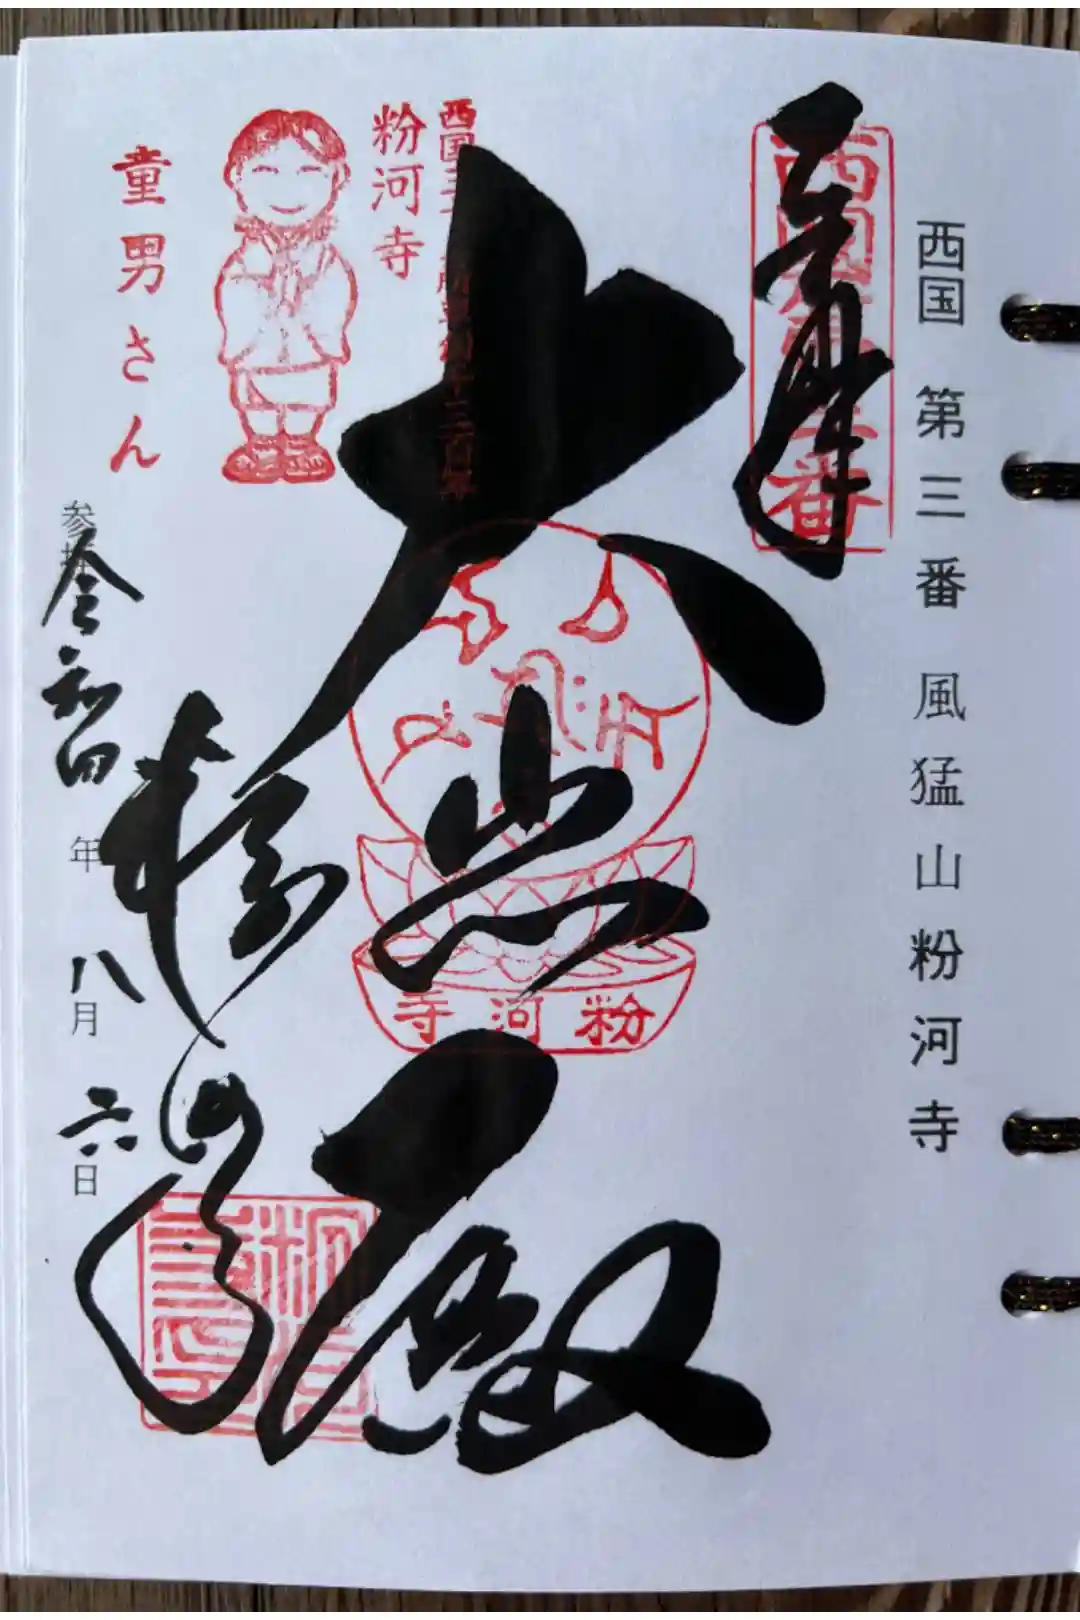 西国 第三番 風猛山粉河寺
奉拝
西国第三番
大悲殿
粉河寺
西国三十三所草創千三百年
粉河寺
童男さん
粉河寺
参拝 令和四年 八月 六日